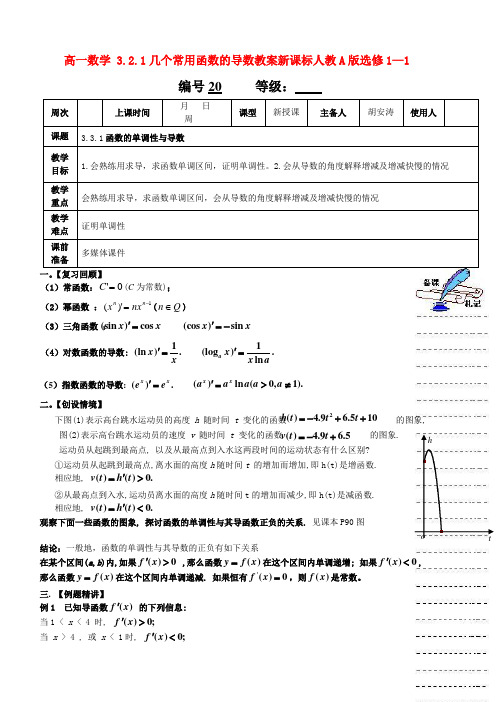 高一数学 3.2.1几个常用函数的导数教案新课标人教A版选修1—1
编号20 等级:
周次 上课时间 月 日 周 课型 新授课 主备人 胡安涛 使用人
课题 3.3.1函数的单调性与导数
教学目标 1.会熟练用求导,求函数单调区间,证明单调性。2.会从导数的角度解释增减及增减快慢的情况
教学重点 会熟练用求导,求函数单调区间,会从导数的角度解释增减及增减快慢的情况
教学难点 证明单调性
课前准备 多媒体课件
一。【复习回顾】
备课
札记
(1)常函数:C' = 0(C 为常数);
(2)幂函数 :(xⁿ)' = nxⁿ⁻¹(n ∈ Q)
(3)三角函数 (sin x)′ = cos x (cos x)′ = −sin x
(4)对数函数的导数: (ln x)′ = 1/x. (logₐ x)′ = 1/(x ln a).
(5)指数函数的导数: (eˣ)′ = eˣ. (aˣ)′ = aˣ ln a(a > 0, a ≠ 1).
二。【创设情境】
下图(1)表示高台跳水运动员的高度 h 随时间 t 变化的函数h(t) = −4.9t² + 6.5t + 10 的图象,
图(2)表示高台跳水运动员的速度 v 随时间 t 变化的函数v(t) = −4.9t + 6.5 的图象.
运动员从起跳到最高点, 以及从最高点到入水这两段时间的运动状态有什么区别?
①运动员从起跳到最高点,离水面的高度h随时间t 的增加而增加,即h(t)是增函数.
相应地, v(t) = h′(t) > 0.
②从最高点到入水,运动员离水面的高度h随时间t的增加而减少,即h(t)是减函数.
相应地, v(t) = h′(t) < 0.
h
o
t
观察下面一些函数的图象, 探讨函数的单调性与其导函数正负的关系. 见课本P90图
结论:一般地,函数的单调性与其导数的正负有如下关系
在某个区间(a,b)内,如果f′(x) > 0 ,那么函数y = f(x)在这个区间内单调递增; 如果f′(x) < 0,
那么函数y = f(x)在这个区间内单调递减. 如果恒有f′(x) = 0,则f(x)是常数。
三.【例题精讲】
例1 已知导函数f′(x) 的下列信息:
当1 < x < 4 时, f′(x) > 0;
当 x > 4 , 或 x < 1时, f′(x) < 0;